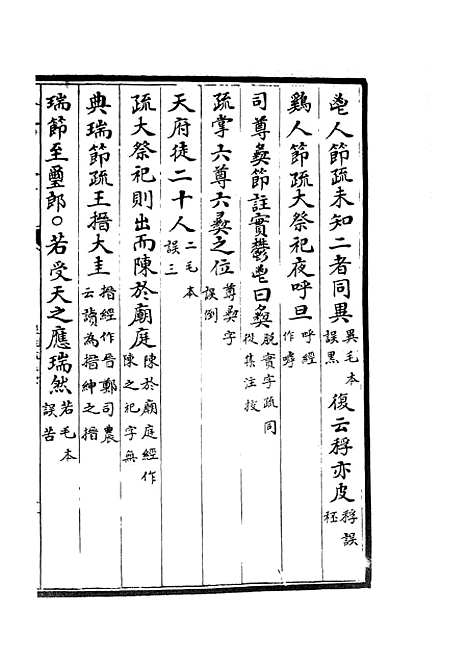 鬯人節疏未知二者同異異毛本誤黑復云稃亦皮稃誤秠
鷄人節疏大祭祀夜呼旦呼經作嘑
司尊彝節註實鬱鬯曰彝脱實字疏同從集注挍
疏掌六尊六彝之位尊彝字誤倒
天府徒二十人二毛本誤三
疏大祭祀則出而陳於廟庭陳於廟庭經作陳之祀字無
典瑞節疏王搢大圭搢經作晉鄭司農云讀為搢紳之搢
瑞節至璽郎○若受天之應瑞然若毛本誤苦